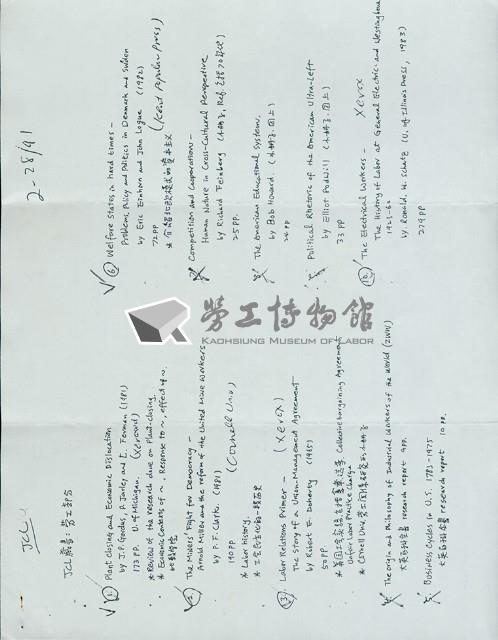 JCL
JCL 藏書: 勞工部分
① Plant Closing and Economic Dislocation
by J. P. Gordus, P. Jarley and L. Ferman (1981)
173 PP. U. of Michigan. (Xeroxed)
* Review of the research done on Plant-closing
* Economic Contexts of ~, Response to ~, effect of ~.
② The Miners' Fight for Democracy —
Arnold Miller and the reform of the United Mine Workers
by P. F. Clark. (1981)
190 PP (Cornell Univ)
* Labor History.
③ Labor Relations Primer — (Xerox)
The Story of a Union-Management Agreement
by Robert E. Doherty (1965)
50 PP.
Collective bargaining Agreement
Unfair Labor Practice Charge
* Cornell Univ.
4. The origin and Philosophy of Industrial Workers of the World (IWW)
大英百科全書 research report 9 pp.
5. Business Cycles in U.S. 1783-1975
大英百科全書 research report 10 pp.
2-28/91
⑥ Welfare States in hard times —
Problems, Policy and Politics in Denmark and Sweden
by Eric Einhorn and John Logue (1982)
72 PP (Kent Popular Press)
7. Competition and Cooperation —
Human Nature in Cross-Cultural Perspective
by Richard Feinberg (小冊子, Ref.
25 PP.
8. The American Educational System.
by Bob Howard. (小冊子. 同上)
24 PP
9. Political Rhetoric of the American Ultra-Left
by Elliot Podwill (小冊子. 同上)
33 PP
⑩ The Electrical Workers — Xerox
The History of Labor at General Electric and Westinghouse
1923-60
by Ronald. W. Schatz (U. of Illinois Press, 1983)
279 PP
勞工博物館
KAOHSIUNG MUSEUM OF LABOR